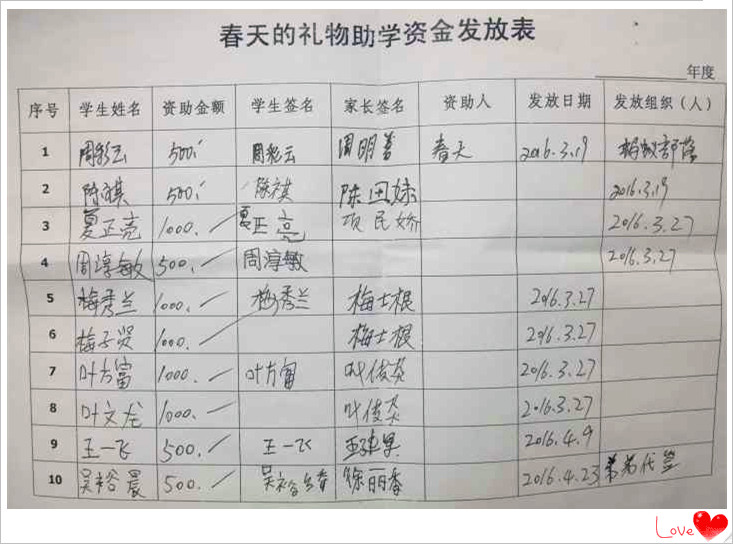 春天的礼物助学资金发放表
年度
序号 学生姓名 资助金额 学生签名 家长签名 资助人 发放日期 发放组织（人）
1 周彩云 500. 周彩云 周明善 春天 2016.3.19 蚂蚁部落
2 陈祺 500. 陈祺 陈 2016.3.19
3 夏正亮 1000. 夏正亮 项民娇 2016.3.27
4 周淳敏 500. 周淳敏 2016.3.27
5 梅秀兰 1000. 梅秀兰 梅士根 2016.3.27
6 梅子贤 1000. 梅士根 2016.3.27
7 叶方富 1000. 叶方富 叶俊英 2016.3.27
8 叶文龙 1000. 叶俊英 2016.3.27
9 王一飞 500. 王一飞 2016.4.9
10 吴裕晨 500. 吴裕 徐丽香 2016.4.23 代签
Love